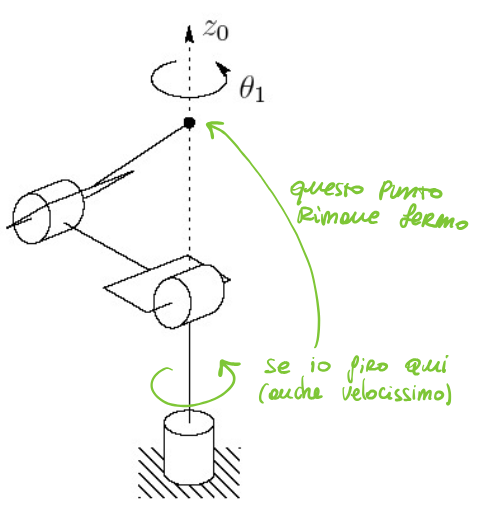 z₀
θ₁
questo punto
Rimane fermo
se io giro qui
(anche velocissimo)